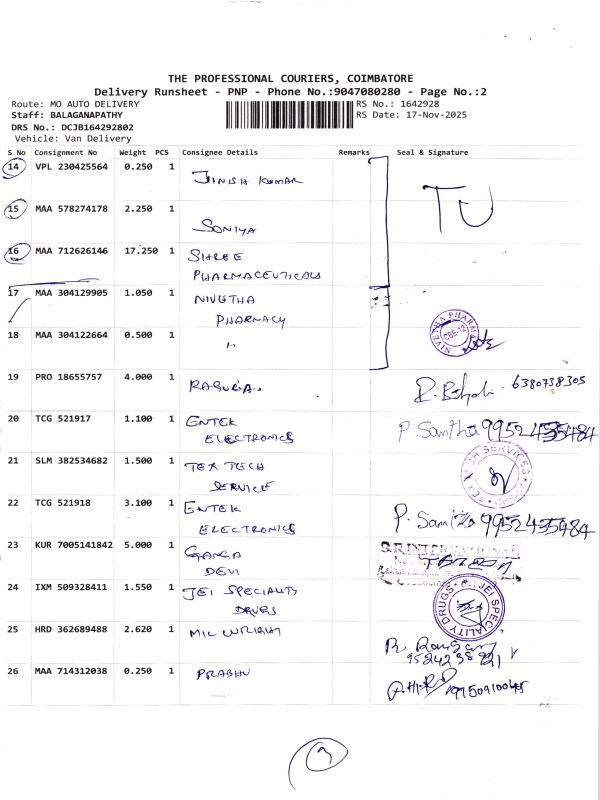 THE PROFESSIONAL COURIERS, COIMBATORE
Delivery Runsheet - PNP - Phone No.:9047080280 - Page No.:2
Route: MO AUTO DELIVERY
Staff: BALAGANAPATHY
DRS No.: DCJB164292802
Vehicle: Van Delivery
RS No.: 1642928
RS Date: 17-Nov-2025
S No Consignment No Weight PCS Consignee Details Remarks Seal & Signature
14 VPL 230425564 0.250 1 JINISH KUMAR
TU
15 MAA 578274178 2.250 1 SONIYA
16 MAA 712626146 17.250 1 SHREE
PHARMACEUTICALS
17 MAA 304129905 1.050 1 NIVETHA
PHARMACY
18 MAA 304122664 0.500 1 "
NIVETHA PHARMA
CBE-12
19 PRO 18655757 4.000 1 6380738305
20 TCG 521917 1.100 1 ENTEK
ELECTRONICS
P. Santha
21 SLM 382534682 1.500 1 TEX TECH
SERVICE
TEX TECH SERVICES
22 TCG 521918 3.100 1 ENTEK
ELECTRONICS
9952435484
23 KUR 7005141842 5.000 1 GANGA
DEVI
24 IXM 509328411 1.550 1 JEI SPECIALITY
DRUGS
JEI SPECIALITY DRUGS
25 HRD 362689488 2.620 1
26 MAA 714312038 0.250 1 PRABHU